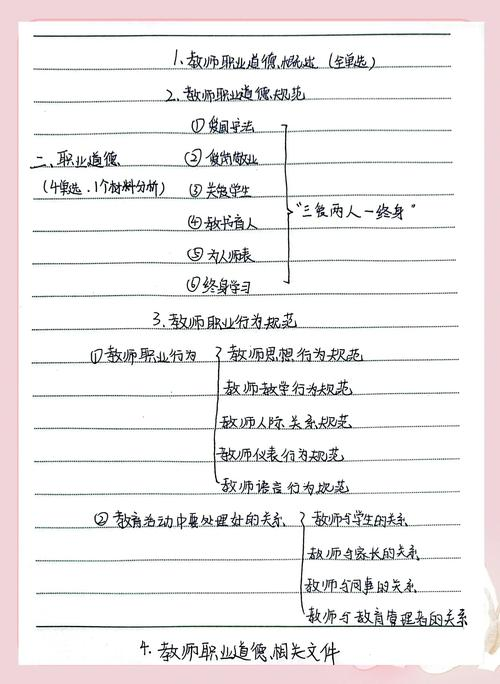 1. 教师职业道德概述 (全单选)
2. 教师职业道德规范
① 爱国守法
二、职业道德 ② 爱岗敬业
(4单选、1个材料分析) ③ 关爱学生
"三爱两人一终身"
④ 教书育人
⑤ 为人师表
⑥ 终身学习
3. 教师职业行为规范
① 教师职业行为 教师思想行为规范
教师教学行为规范
教师人际关系规范
教师仪表行为规范
教师语言行为规范
② 教育活动中要处理好的关系 教师与学生的关系
教师与家长的关系
教师与同事的关系
教师与教育管理者的关系
4. 教师职业道德相关文件